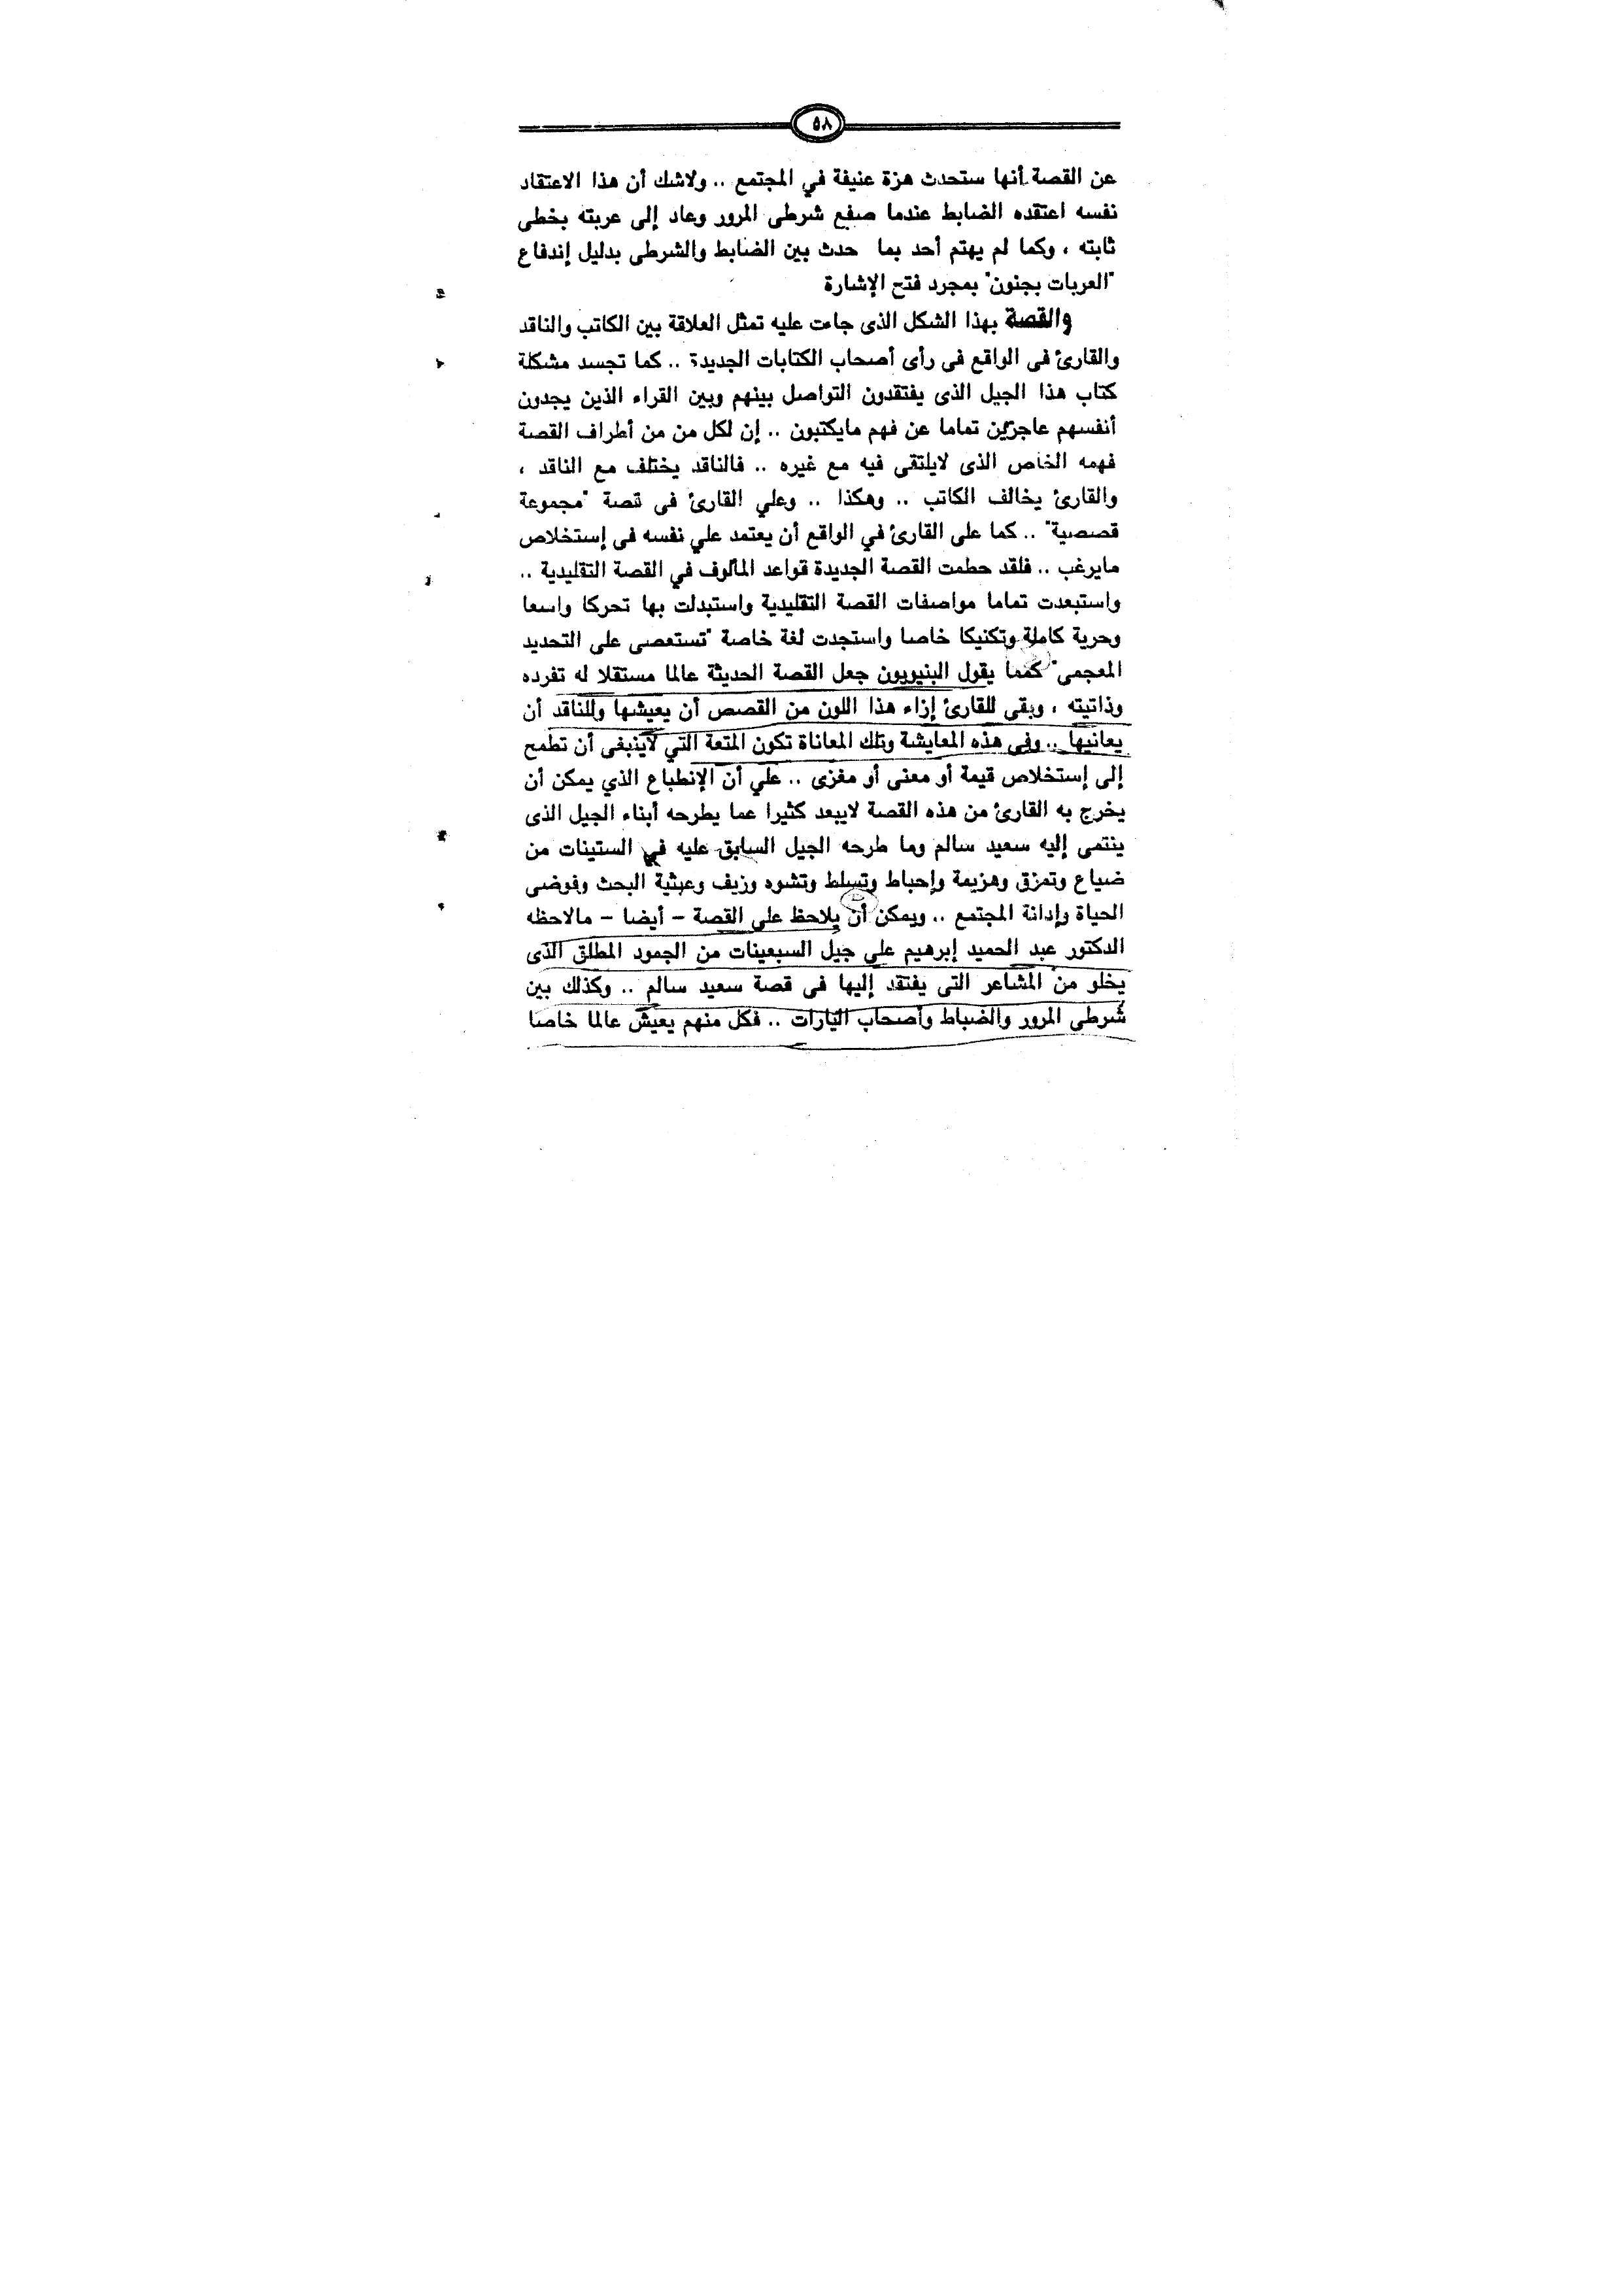 ٥٨
عن القصة أنها ستحدث هزة عنيفة في المجتمع .. ولاشك أن هذا الاعتقاد
نفسه اعتقده الضابط عندما صفع شرطى المرور وعاد إلى عربته بخطى
ثابته ، وكما لم يهتم أحد بما حدث بين الضابط والشرطى بدليل إندفاع
"العربات بجنون" بمجرد فتح الإشارة
والقصة بهذا الشكل الذى جاءت عليه تمثل العلاقة بين الكاتب والناقد
والقارئ فى الواقع فى رأى أصحاب الكتابات الجديدة .. كما تجسد مشكلة
كتاب هذا الجيل الذى يفتقدون التواصل بينهم وبين القراء الذين يجدون
أنفسهم عاجزين تماما عن فهم مايكتبون .. إن لكل من من أطراف القصة
فهمه الخاص الذى لايلتقى فيه مع غيره .. فالناقد يختلف مع الناقد ،
والقارئ يخالف الكاتب .. وهكذا .. وعلي القارئ فى قصة "مجموعة
قصصية" .. كما على القارئ في الواقع أن يعتمد علي نفسه فى إستخلاص
مايرغب .. فلقد حطمت القصة الجديدة قواعد المألوف في القصة التقليدية ..
واستبعدت تماما مواصفات القصة التقليدية واستبدلت بها تحركا واسعا
وحرية كاملة وتكنيكا خاصا واستجدت لغة خاصة "تستعصى على التحديد
المعجمى" كما يقول البنيويون جعل القصة الحديثة عالما مستقلا له تفرده
وذاتيته ، وبقى للقارئ إزاء هذا اللون من القصص أن يعيشها وللناقد أن
يعانيها .. وفى هذه المعايشة وتلك المعاناة تكون المتعة التي لاينبغى أن تطمح
إلى إستخلاص قيمة أو معنى أو مغزى .. علي أن الإنطباع الذي يمكن أن
يخرج به القارئ من هذه القصة لايبعد كثيرا عما يطرحه أبناء الجيل الذى
ينتمى إليه سعيد سالم وما طرحه الجيل السابق عليه في الستينات من
ضياع وتمزق وهزيمة وإحباط وتسلط وتشوه وزيف وعبثية البحث وفوضى
الحياة وإدانة المجتمع .. ويمكن أن يلاحظ على القصة - أيضا - مالاحظه
الدكتور عبد الحميد إبرهيم علي جيل السبعينات من الجمود المطلق الذى
يخلو من المشاعر التى يفتقد إليها فى قصة سعيد سالم .. وكذلك بين
شرطى المرور والضباط وأصحاب اليارات .. فكل منهم يعيش عالما خاصا